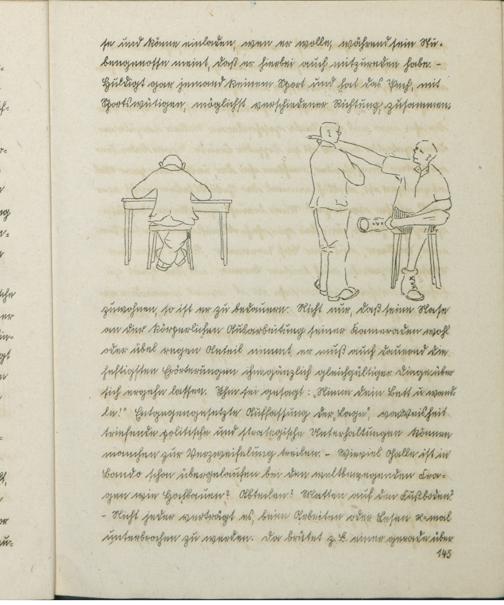 se und könne einladen, wen er wolle, während sein Stu-
bengenosse meint, daß er hierbei auch mitzureden habe. -
Huldigt gar jemand keinem Sport und hat das Pech, mit
Sportswütigen, möglichst verschiedener Richtung, zusammen-
zuwohnen, so ist er zu bedauern. Nicht nur, daß seine Nase
an der körperlichen Ausarbeitung seiner Kameraden wohl
oder übel regen Anteil nimmt, er muß auch dauernd die
heftigsten Erörterungen ihm gänzlich gleichgültiger Dinge über
sich ergehn lassen. Ihm sei gesagt: „Nimm dein Bett u. wand-
le!" Entgegengesetzte Auffassung der „Lage", weisheit-
triefende politische und strategische Unterhaltungen können
manchen zur Verzweiflung treiben. - Wieviel Galle ist in
Bando schon übergelaufen bei den weltbewegenden Fra-
gen wie Hochbauen? Abteilen? Matten auf den Fußboden?
- Nicht jeder verträgt es, beim Arbeiten oder Lesen x-mal
unterbrochen zu werden. Da brütet z.B. einer gerade über
145